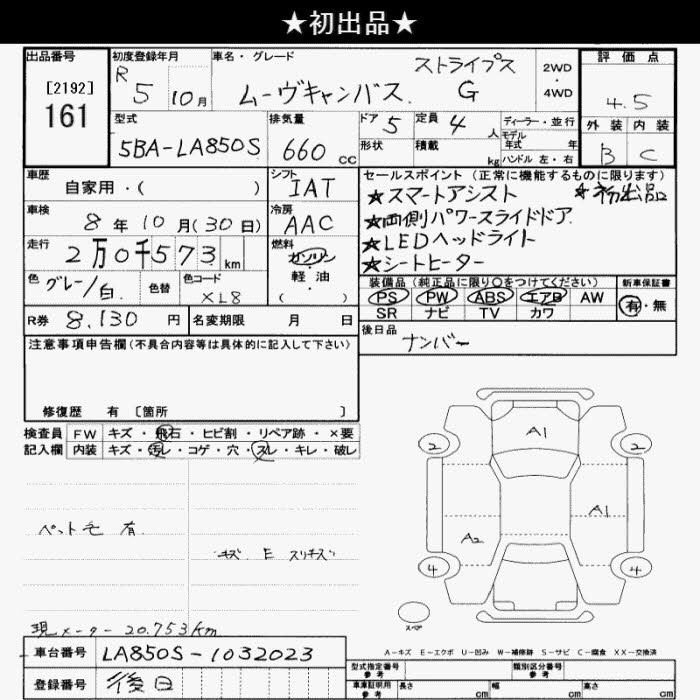 ★初出品★
出品番号
[2192]
161
初度登録年月
R 5 10月
車名・グレード
ムーヴキャンバス ストライプス G
2WD・4WD
評価点
4.5
外装 内装
B C
型式
5BA-LA850S
排気量
660 cc
ドア 5
定員 4 人
ディーラー・並行
モデル年式 年
形状
積載 kg
ハンドル 左・右
車歴
自家用・( )
シフト
IAT
セールスポイント(正常に機能するものに限ります)
★スマートアシスト ★初出品
★両側パワースライドドア
★LEDヘッドライト
★シートヒーター
車検
8年10月(30日)
冷房
AAC
走行
2万0千573km
燃料
ガソリン
軽・油
( )
色
グレー/白
色替
色コード
XL8
装備品(純正品に限り○をつけてください)
PS PW ABS エアB AW
SR ナビ TV カワ
新車保証書
有・無
R券 8,130円
名変期限 月 日
後日品
ナンバー
注意事項申告欄(不具合内容等は具体的に記入して下さい)
修復歴 有 〔箇所 〕
検査員記入欄
FW キズ・飛石・ヒビ割・リペア跡・×要
内装 キズ・汚レ・コゲ・穴・スレ・キレ・破レ
ペット毛 有
キズ E スリキズ
現メーター 20.753km
A1
2 2
A1
A2
4 4
スペア
A-キズ E-エクボ U-凹み W-補修跡 S-サビ C-腐食 XX-交換済
車台番号 LA850S-1032023
登録番号 後日
型式指定番号 参考
類別区分番号 参考
車庫証明用 参考
長さ cm
幅 cm
高さ cm